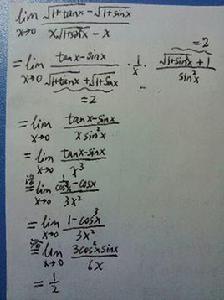 lim x→0 (√(1+tanx) − √(1+sinx)) / (x√(1+sin²x) − x)
= lim x→0 (tanx−sinx) / (√(1+tanx) + √(1+sinx)) · 1/x · (√(1+sin²x) + 1) / sin²x
=2
=2
= lim x→0 (tanx−sinx) / (x sin²x)
= lim x→0 (tanx−sinx) / x³
= lim x→0 (1/cos²x − cosx) / 3x²
= lim x→0 (1−cos³x) / 3x²
= lim x→0 3cos²x sinx / 6x
= 1/2